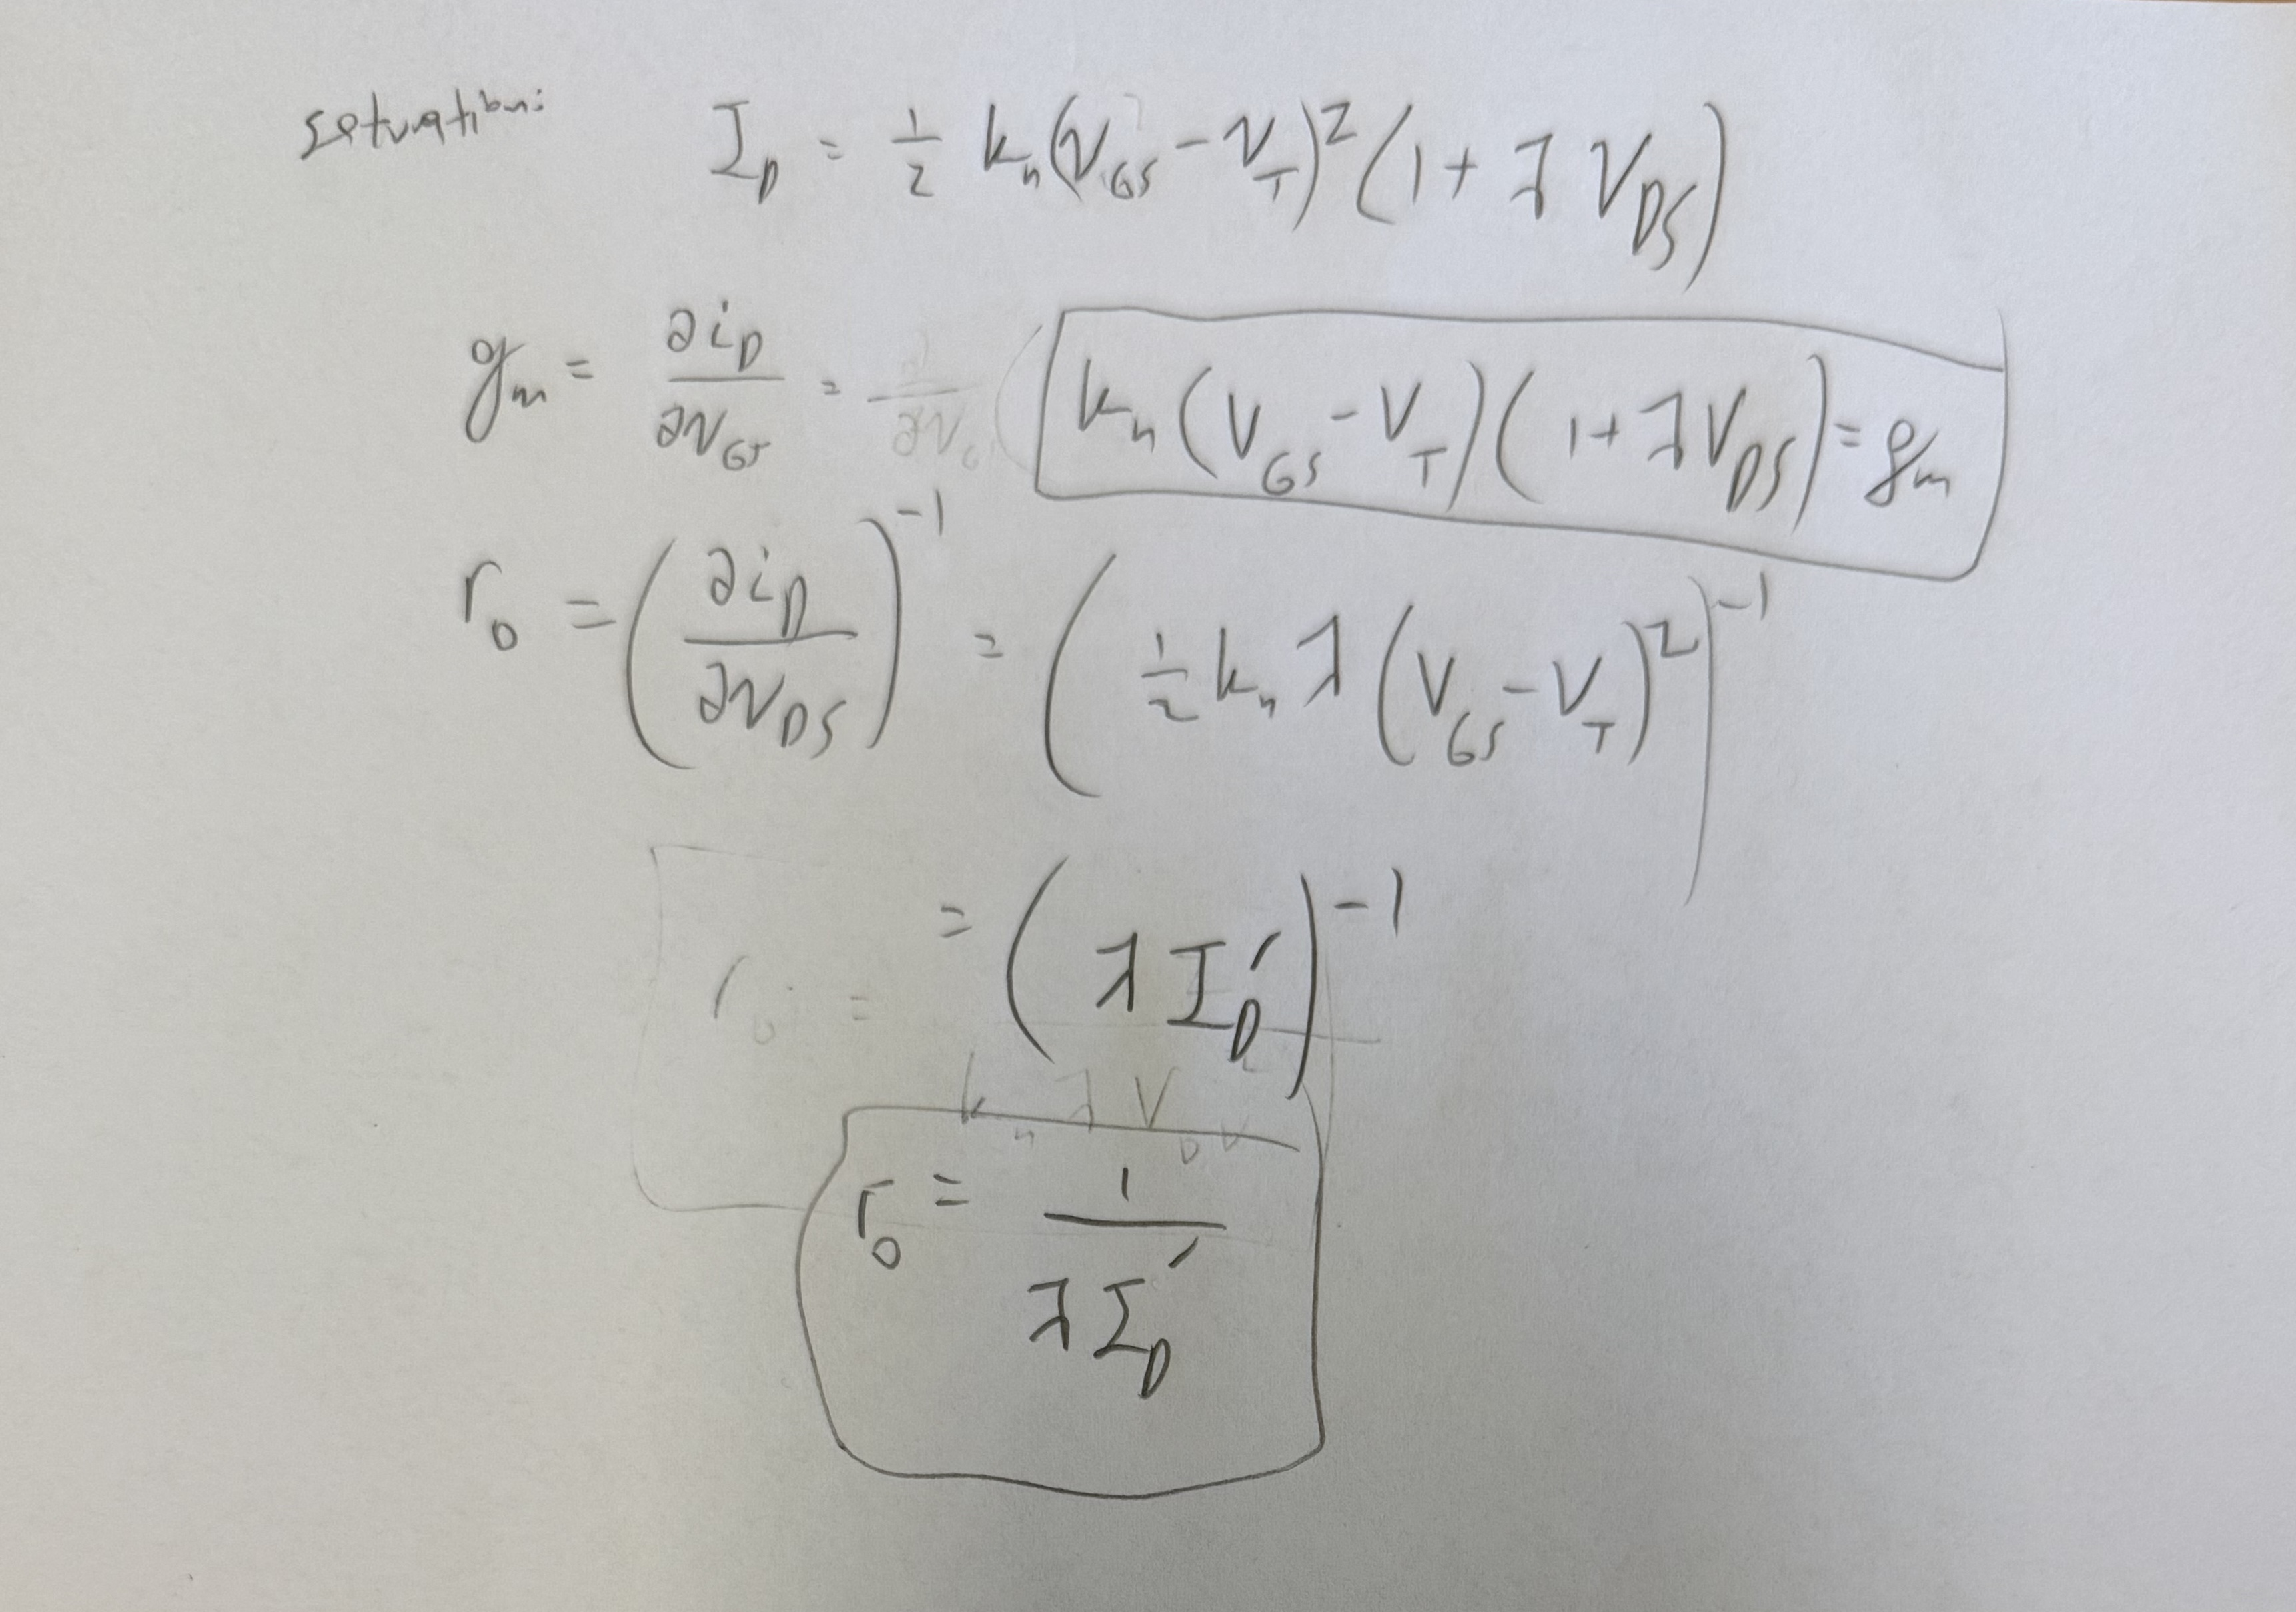 saturation: I_D = 1/2 k_n (V_GS - V_T)^2 (1 + λ V_DS)
g_m = ∂i_D/∂v_GS = k_n (V_GS - V_T) (1 + λ V_DS) = g_m
r_o = (∂i_D/∂v_DS)^-1 = (1/2 k_n λ (V_GS - V_T)^2)^-1
= (λ I_D')^-1
r_o =
k_n λ V_OV
r_o = 1/(λ I_D')